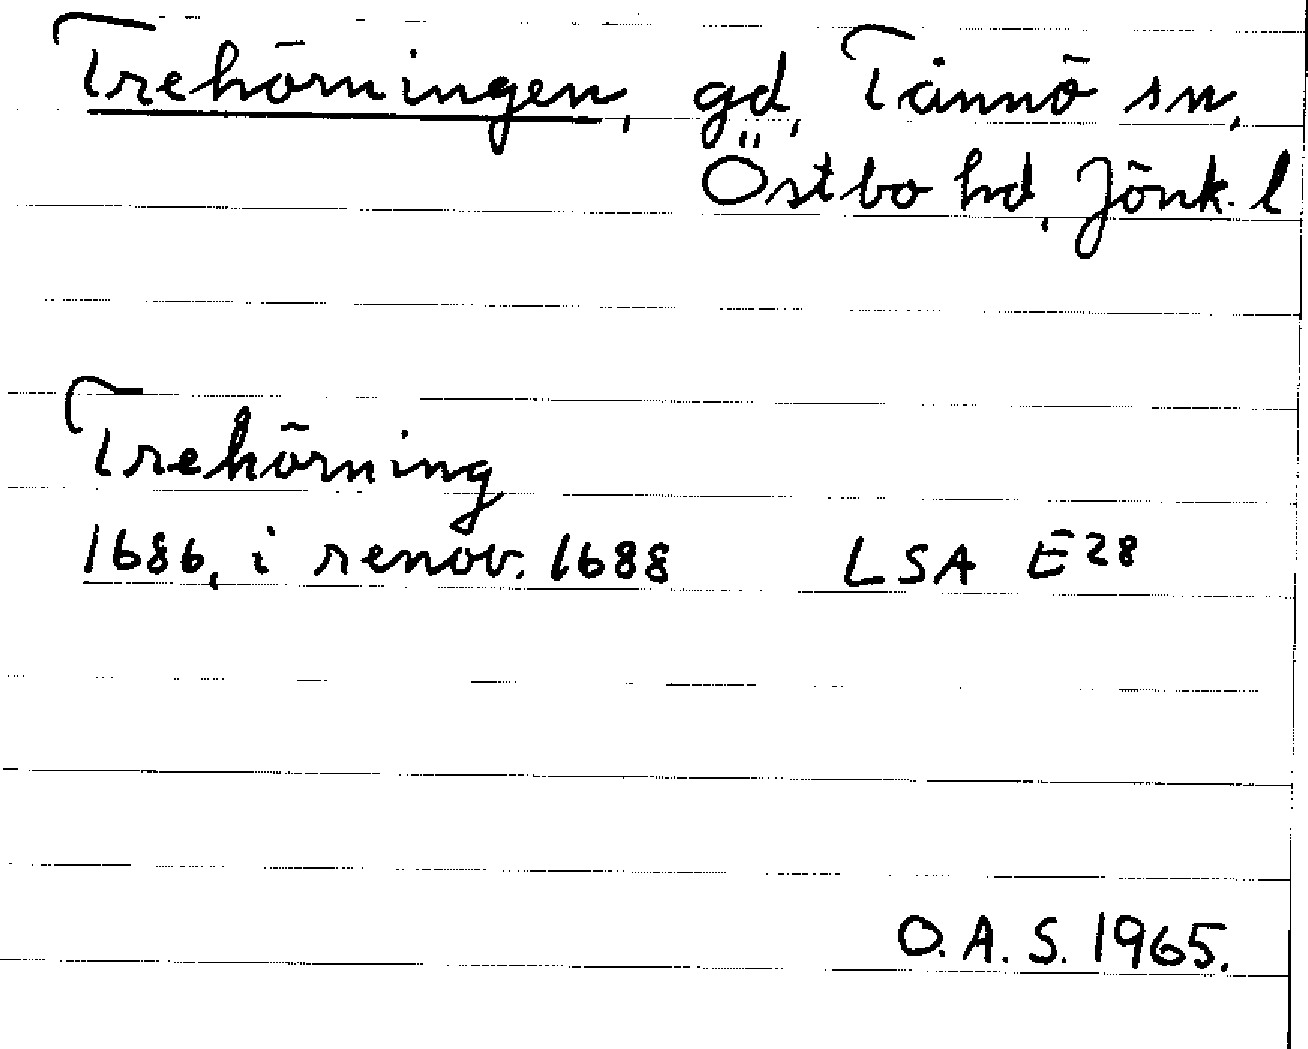 Trehörningen, gd, Tånnö sn,
Östbo hd, Jönk. l
Trehörning
1686, i renov. 1688 LSA E28
O.A.S. 1965.